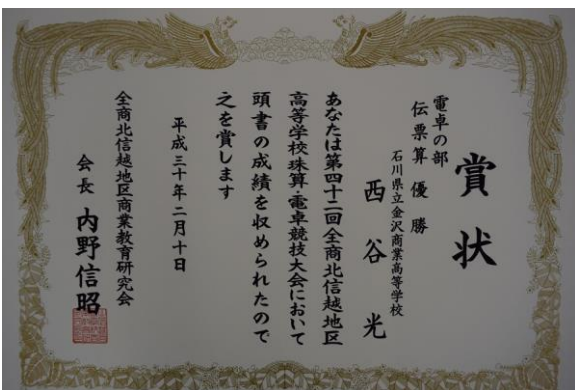 賞状
電卓の部
伝票算 優勝
石川県立金沢商業高等学校
西谷 光
あなたは第四十二回全商北信越地区
高等学校珠算・電卓競技大会において
頭書の成績を収められたので
之を賞します
平成三十年二月十日
全商北信越地区商業教育研究会
会長 内野信昭